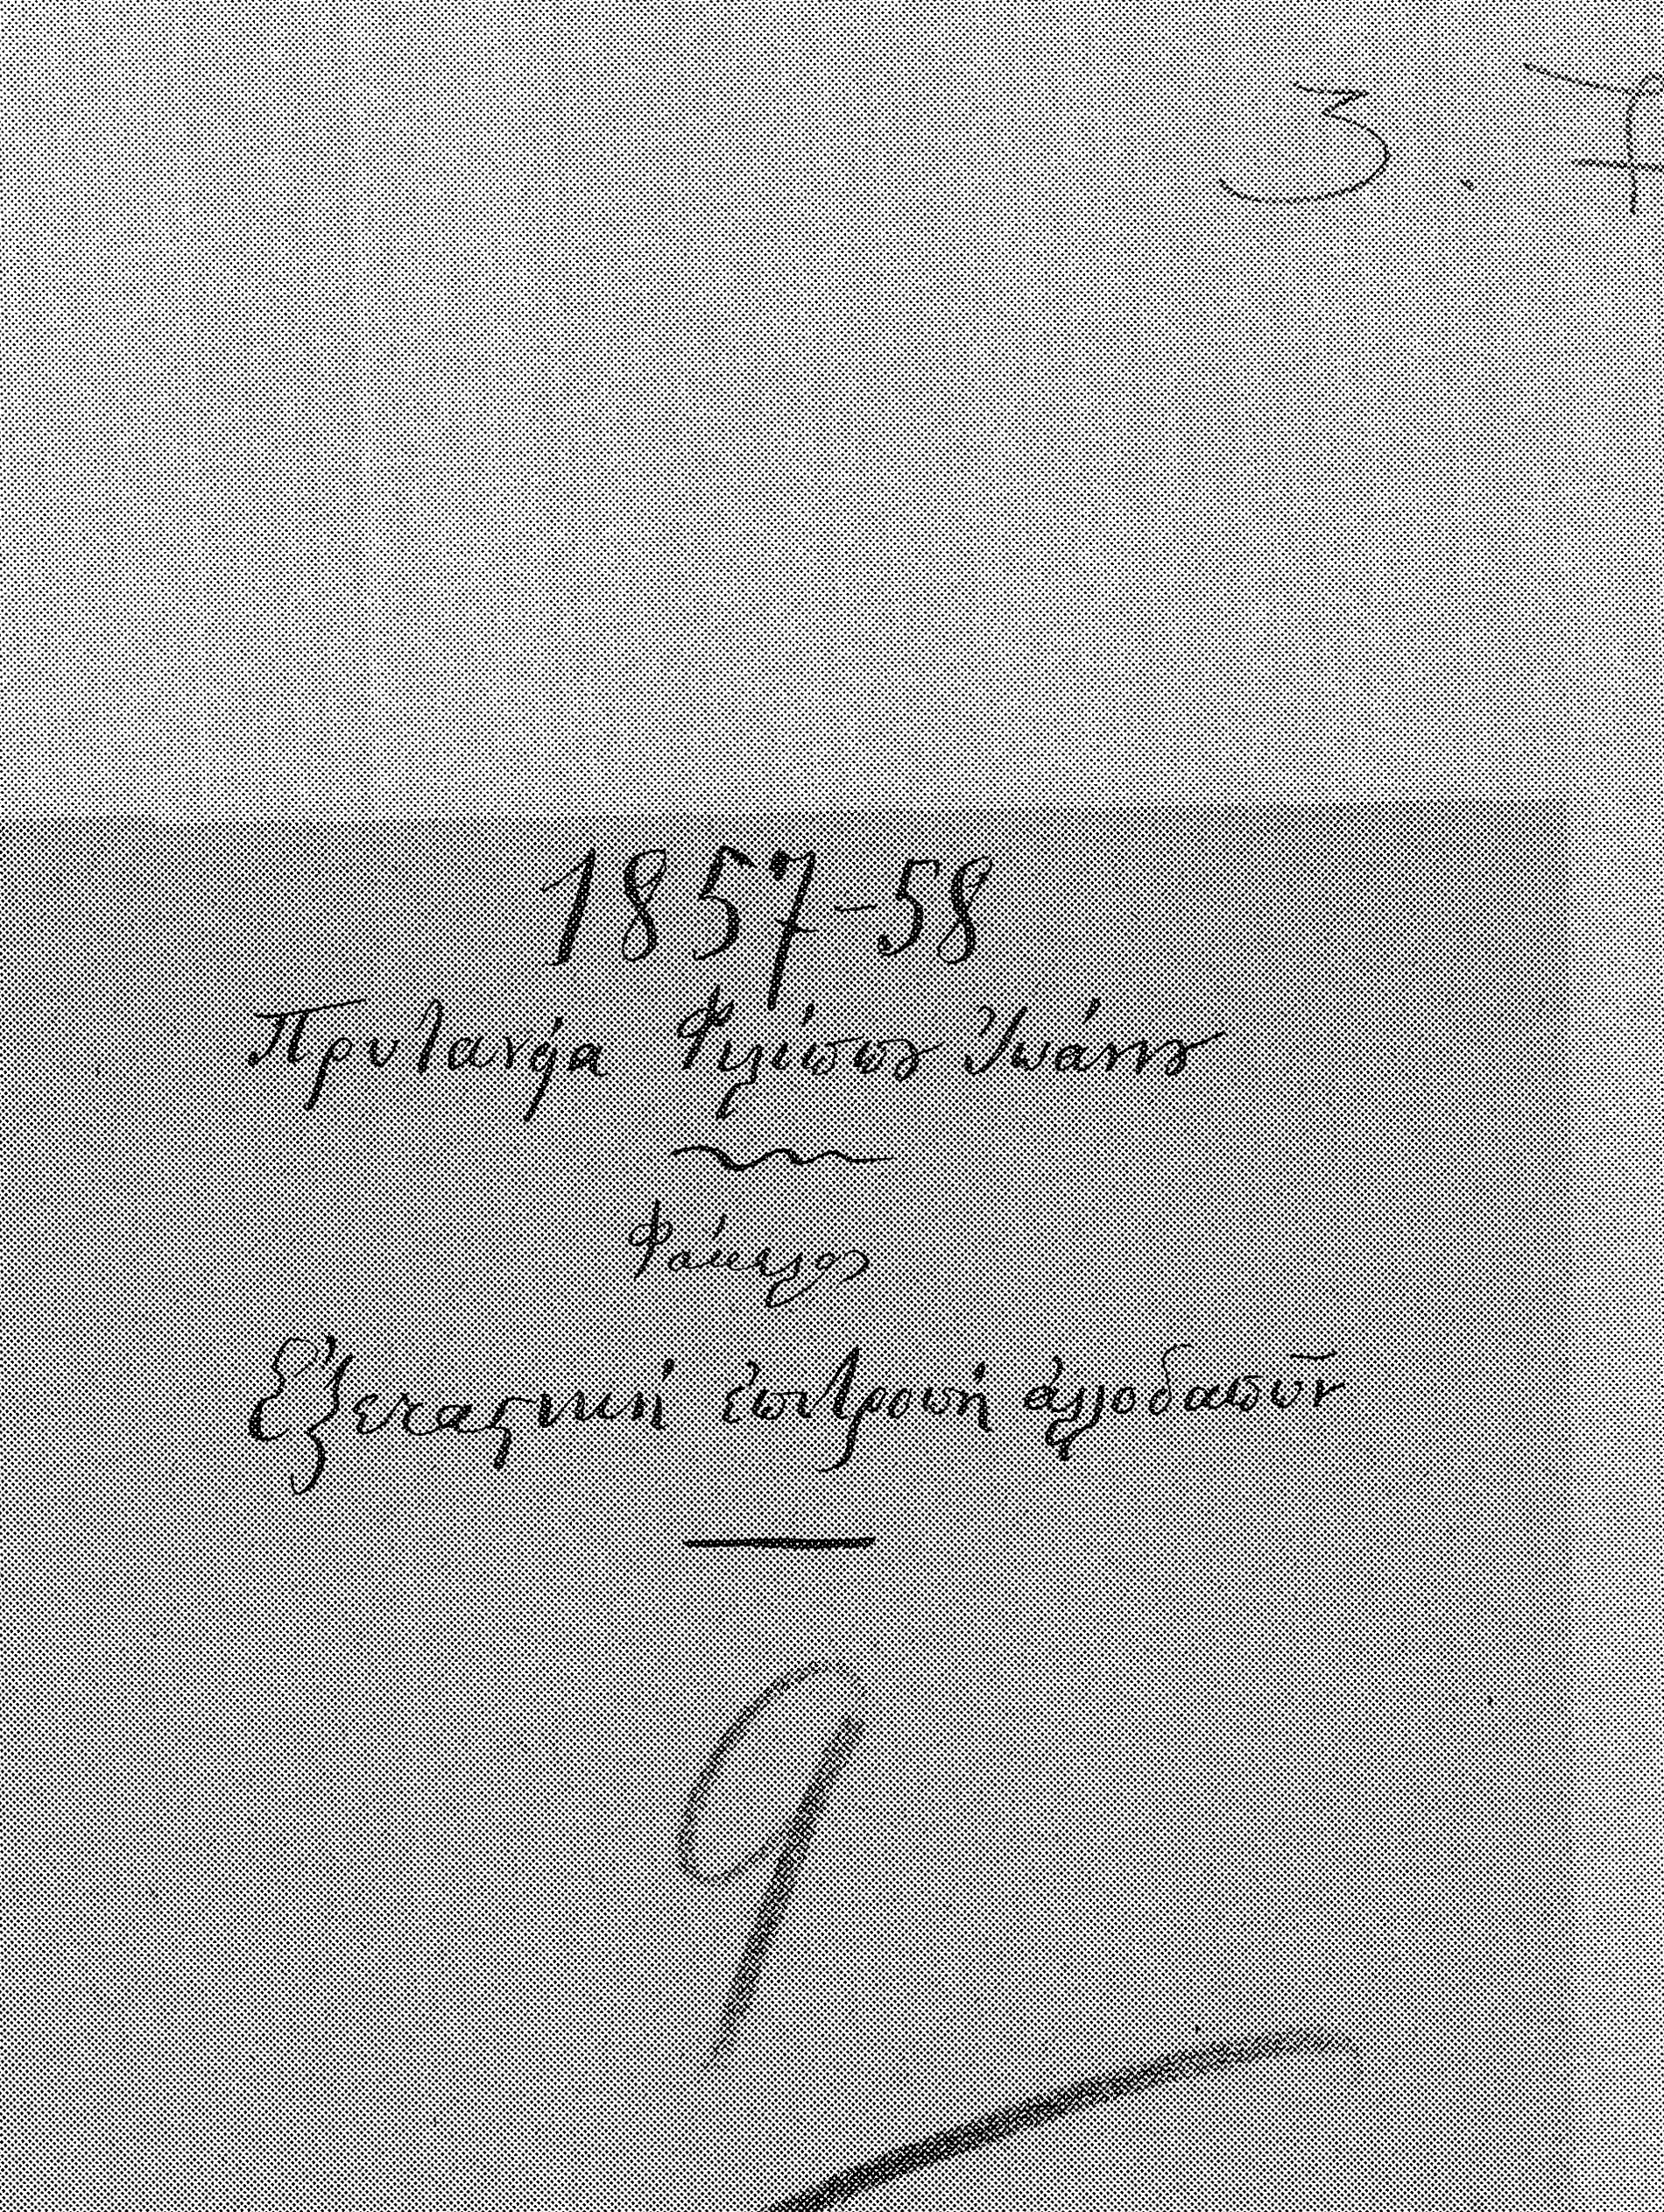 3.7
1857-58
Πρυτανεία Φιλίππου Ἰωάννου
Φάκελος
Ἐξεταστική ἐπιτροπή ἀλλοδαπῶν
9